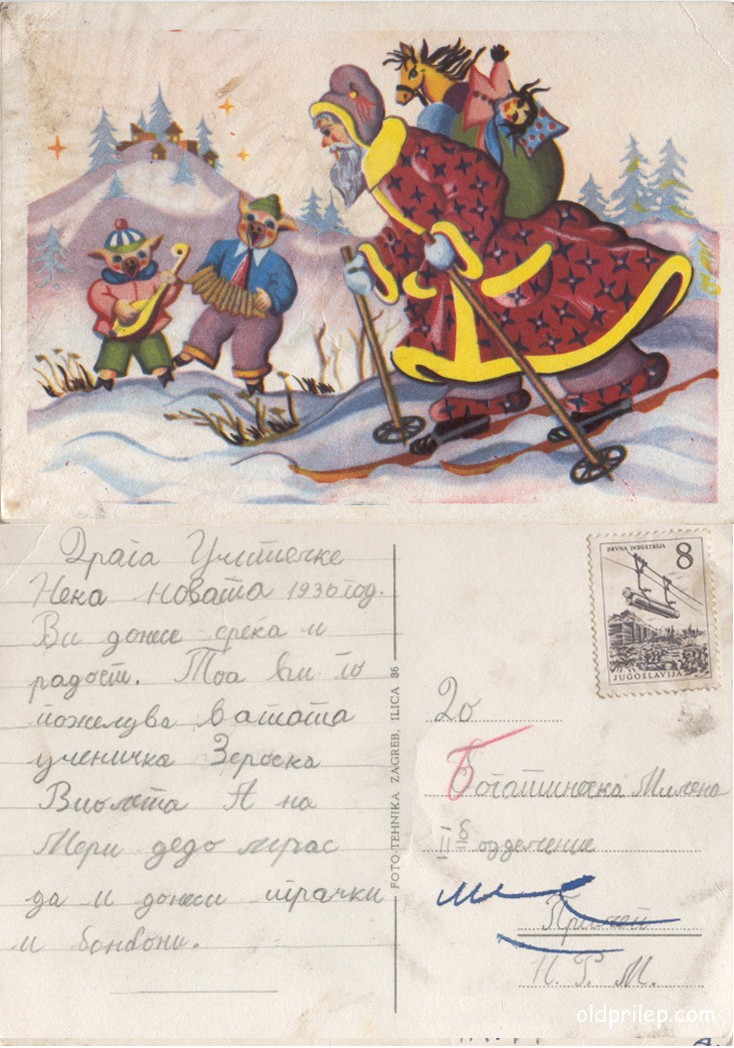 Драга Учителке
Нека новата 1936 год.
Ви донси среќа и
радост. Тоа ви го
пожелува вашата
ученичка Зероска
Виолета А на
Мери дедо мраз
да и донеси играчки
и бонбони.
FOTO-TEHNIKA ZAGREB, ILICA 36
DRVNA INDUSTRIJA 8
JUGOSLAVIJA
До
Богатиноска Милена
II б одделение
Прилеп
Н. Р. М.
oldprilep.com